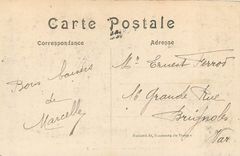 Carte Postale
Correspondance
Adresse
Bons baisers
de
Marcelle
Mr Ernest Ferrod
16 Grande Rue
Brignoles
Var